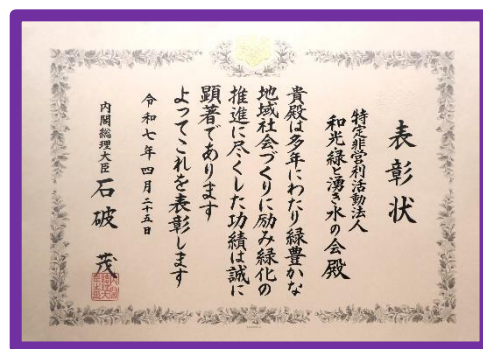 表彰状
特定非営利活動法人
和光・緑と湧き水の会殿
貴殿は多年にわたり緑豊かな
地域社会づくりに励み緑化の
推進に尽くした功績は誠に
顕著であります
よってこれを表彰します
令和七年四月二十五日
内閣総理大臣 石破 茂